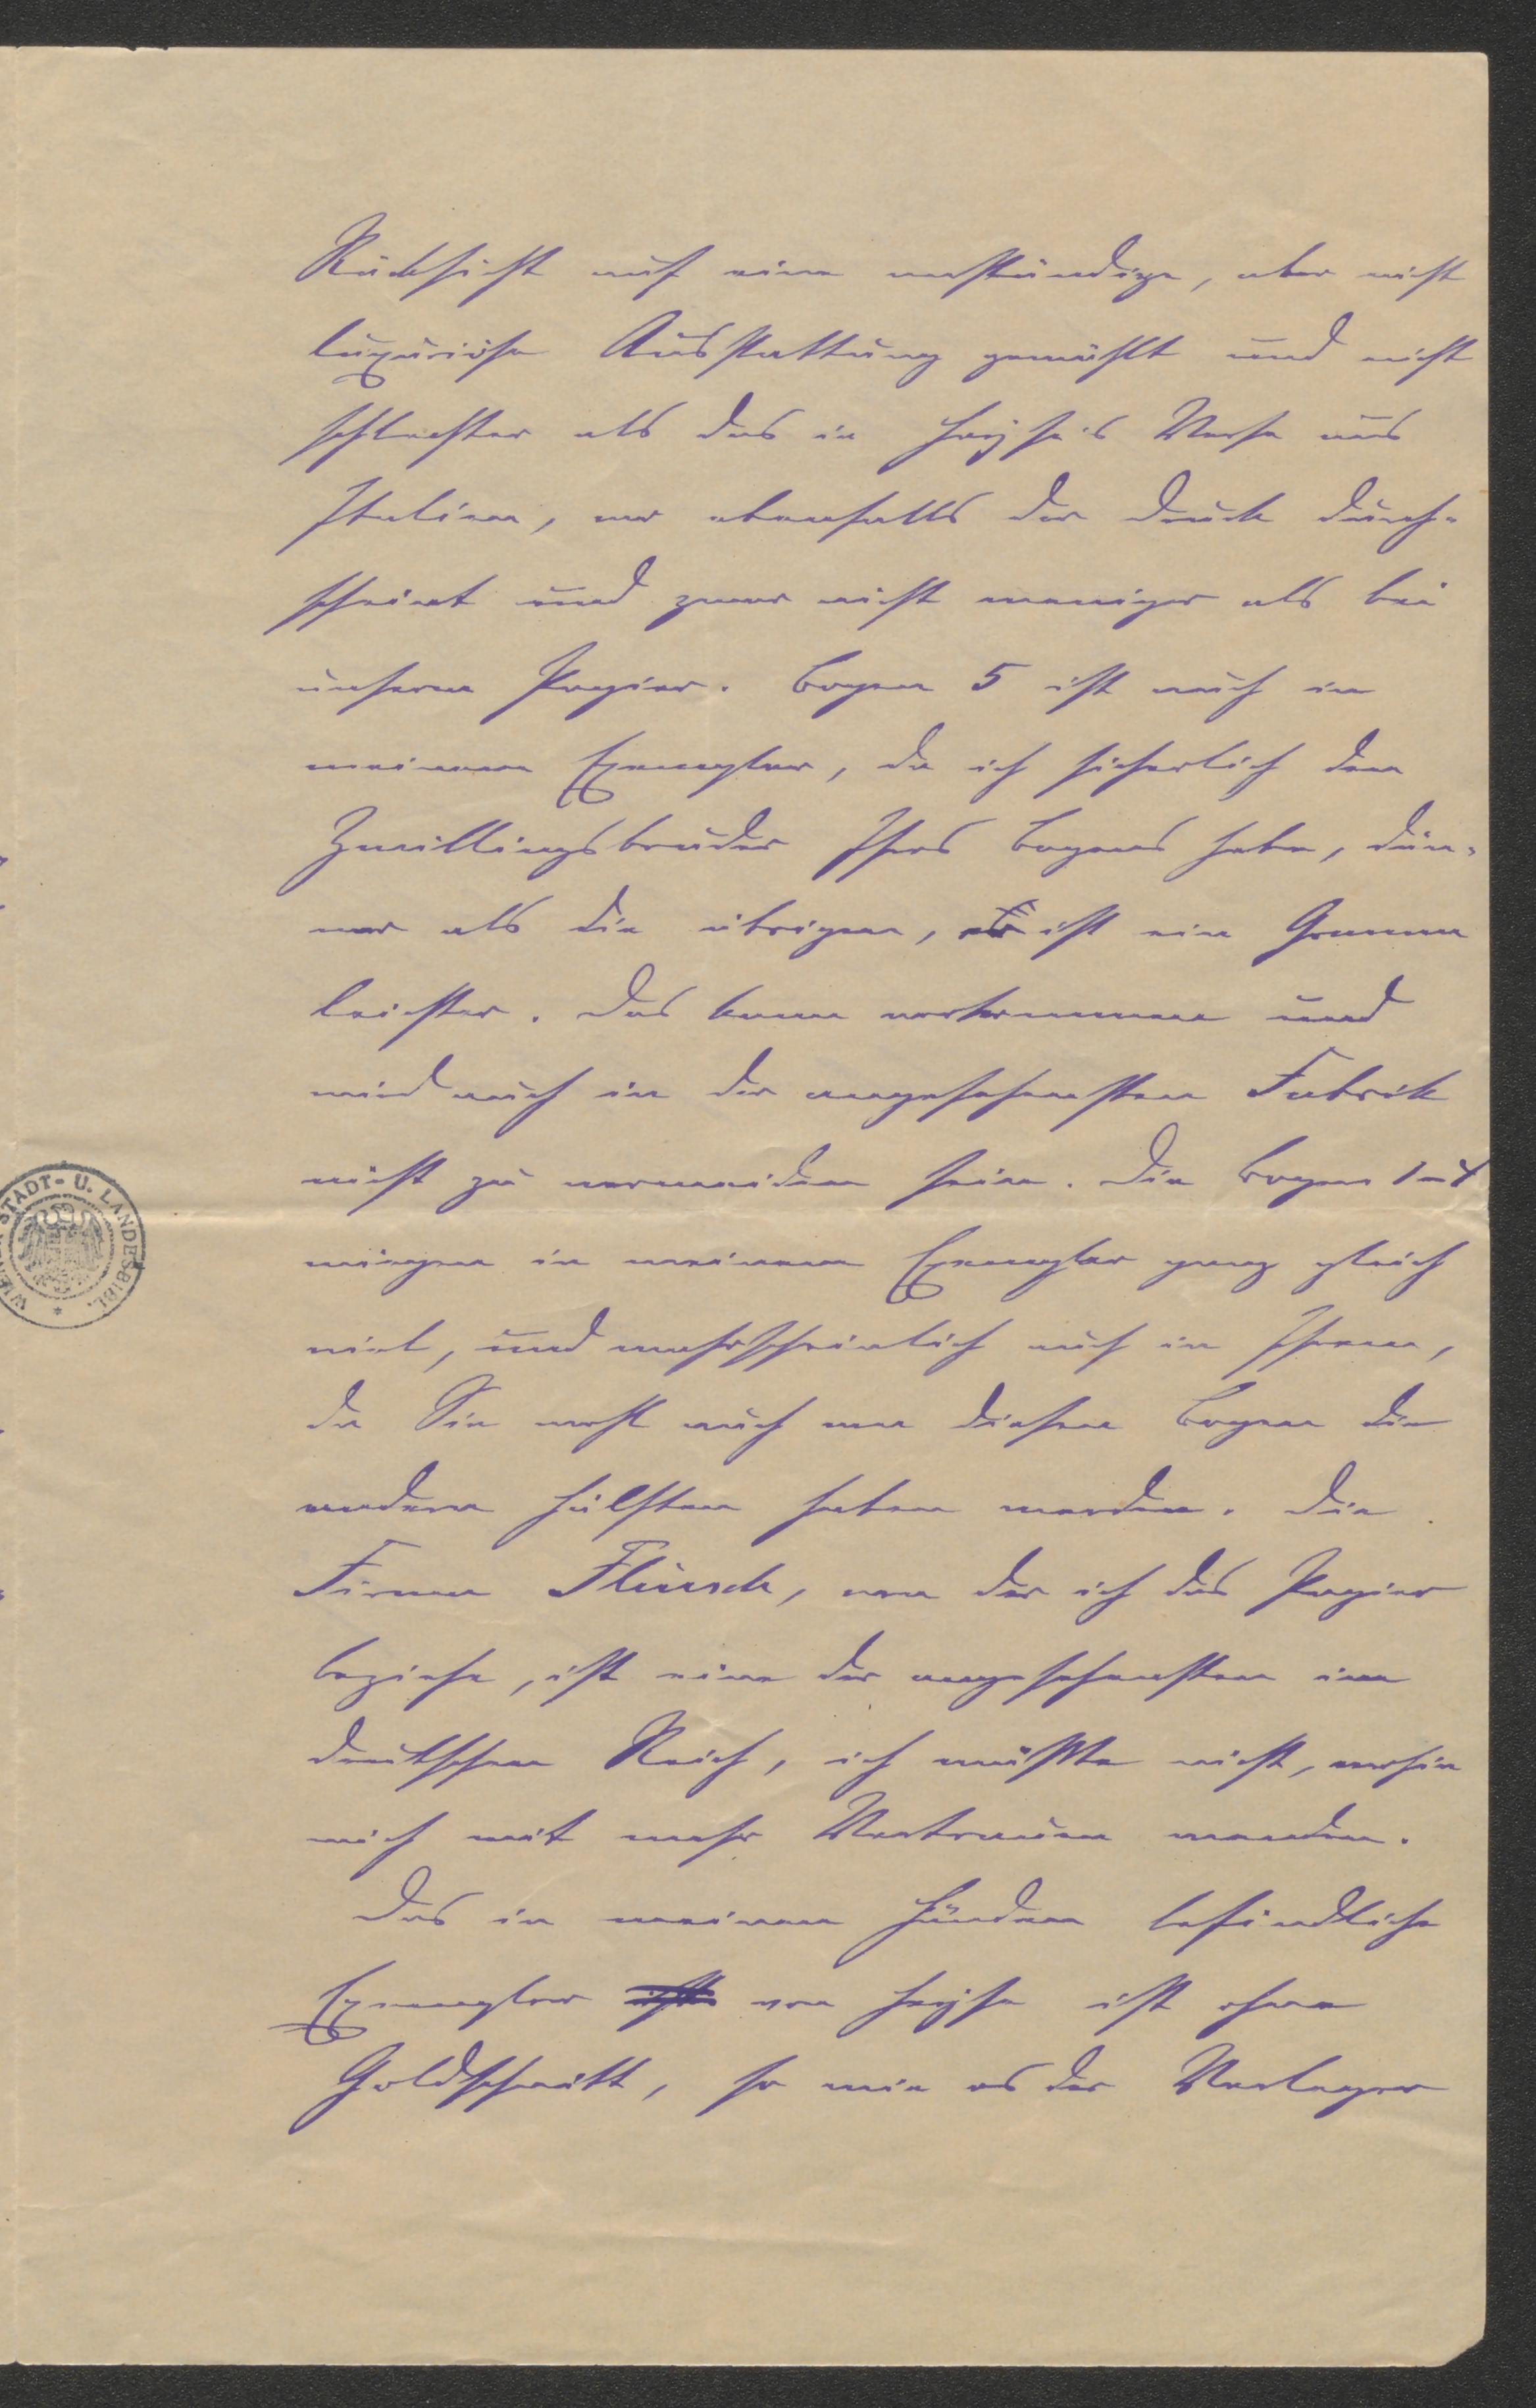 Rücksicht auf eine anständige, aber nicht
luxuriöse Ausstattung gewählt und nicht
schlechter als das in Heyse's Verse aus
Italien, wo ebenfalls der Druck durch-
scheint und zwar nicht weniger als bei
unserm Papier. Bogen 5 ist auch in
meinem Exemplar, da ich sicherlich den
Zwillingsbruder Ihres Bogens habe, dün-
ner als die übrigen, er ist ein Gramm
leichter. Das kann vorkommen und
wird auch in der angesehensten Fabrik
nicht zu vermeiden sein. Die Bogen 1-4
wiegen in meinem Exemplar ganz gleich
viel, und wahrscheinlich auch in Ihrem,
da Sie wohl auch von diesen Bogen die
andern Hälften haben werden. Die
Firma Flinsch, von der ich das Papier
beziehe, ist eine der angesehensten im
deutschen Reich, ich wüßte nicht, wohin
mich mit mehr Vertrauen wenden.
Das in meinen Händen befindliche
Exemplar von Heyse ist ohne
Goldschnitt, so wie es der Verleger
WIENER STADT- U. LANDESBIBL. *